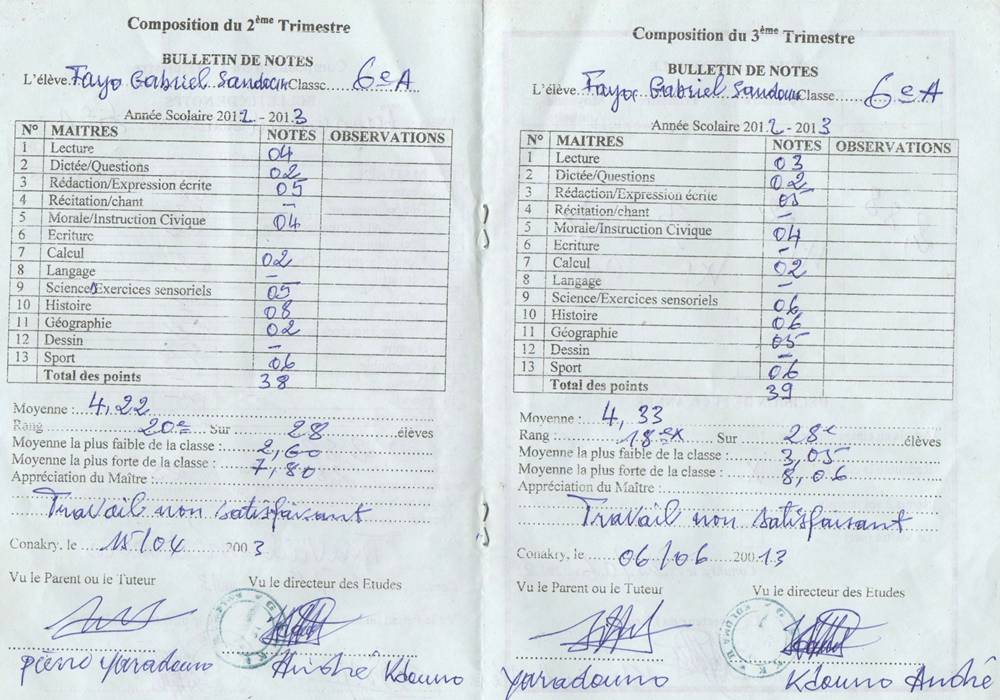 Composition du 2ème Trimestre
BULLETIN DE NOTES
L'élève. Fayo Gabriel Sandouno Classe 6e A
Année Scolaire 2012 - 2013
N° MAITRES NOTES OBSERVATIONS
1 Lecture 04
2 Dictée/Questions 02
3 Rédaction/Expression écrite 05
4 Récitation/chant –
5 Morale/Instruction Civique 04
6 Ecriture
7 Calcul 02
8 Langage –
9 Science/Exercices sensoriels 05
10 Histoire 08
11 Géographie 02
12 Dessin –
13 Sport 06
Total des points 38
Moyenne : 4,22
Rang 20e Sur 28 élèves
Moyenne la plus faible de la classe : 2,60
Moyenne la plus forte de la classe : 7,80
Appréciation du Maître :
Travail non satisfaisant
Conakry, le 15/04 2003
Vu le Parent ou le Tuteur Vu le directeur des Etudes
Yaradouno André Kdouno
Composition du 3ème Trimestre
BULLETIN DE NOTES
L'élève. Fayo Gabriel Sandouno Classe 6e A
Année Scolaire 2012 - 2013
N° MAITRES NOTES OBSERVATIONS
1 Lecture 03
2 Dictée/Questions 02
3 Rédaction/Expression écrite 05
4 Récitation/chant –
5 Morale/Instruction Civique 04
6 Ecriture –
7 Calcul 02
8 Langage –
9 Science/Exercices sensoriels 06
10 Histoire 06
11 Géographie 05
12 Dessin –
13 Sport 06
Total des points 39
Moyenne : 4,33
Rang : 18ex Sur 28e élèves
Moyenne la plus faible de la classe : 3,05
Moyenne la plus forte de la classe : 8,06
Appréciation du Maître :
Travail non satisfaisant
Conakry, le 06/06 200 13
Vu le Parent ou le Tuteur Vu le directeur des Etudes
Yaradouno Kdouno André